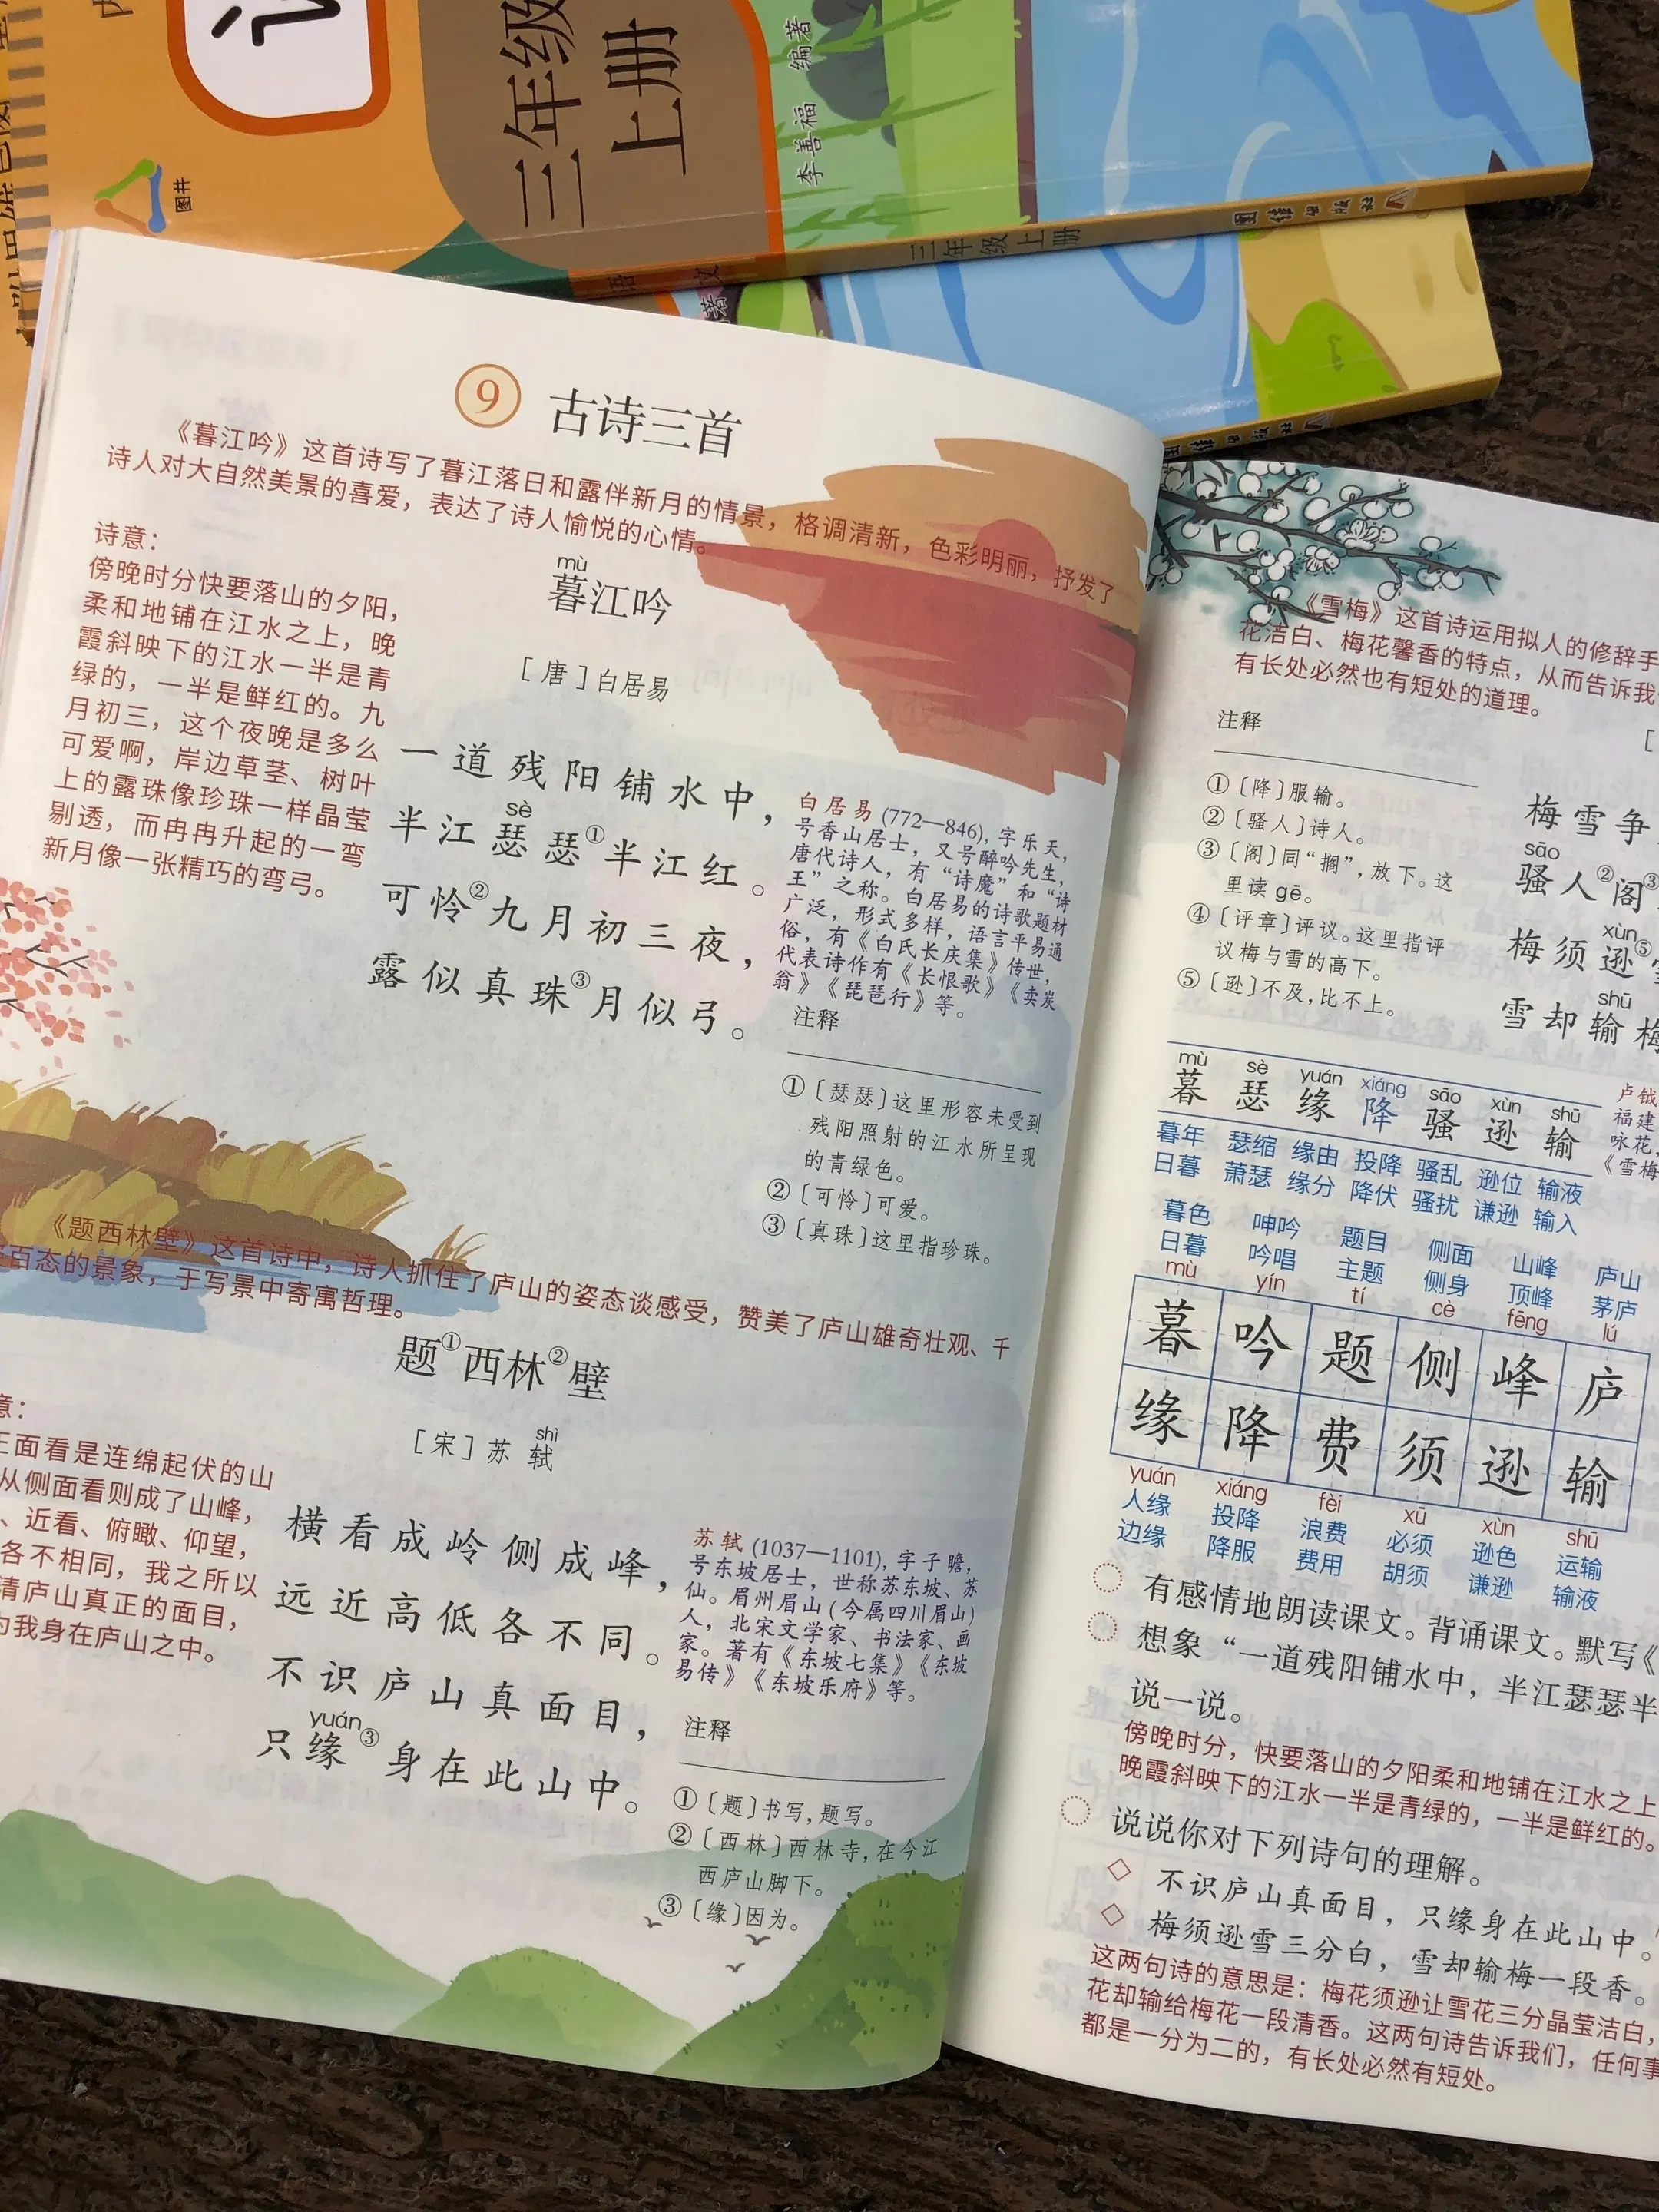 三年级
上册
李善福 编著
图井
三年级 上册
团结出版社
团结出版社
9 古诗三首
《暮江吟》这首诗写了暮江落日和露伴新月的情景，格调清新，色彩明丽，抒发了
诗人对大自然美景的喜爱，表达了诗人愉悦的心情。
诗意：
傍晚时分快要落山的夕阳，
柔和地铺在江水之上，晚
霞斜映下的江水一半是青
绿的，一半是鲜红的。九
月初三，这个夜晚是多么
可爱啊，岸边草茎、树叶
上的露珠像珍珠一样晶莹
剔透，而冉冉升起的一弯
新月像一张精巧的弯弓。
mù
暮江吟
［唐］白居易
一道残阳铺水中，
sè
半江瑟瑟①半江红。
可怜②九月初三夜，
露似真珠③月似弓。
白居易(772—846)，字乐天，
号香山居士，又号醉吟先生，
唐代诗人，有“诗魔”和“诗
王”之称。白居易的诗歌题材
广泛，形式多样，语言平易通
俗，有《白氏长庆集》传世，
代表诗作有《长恨歌》《卖炭
翁》《琵琶行》等。
注释
①〔瑟瑟〕这里形容未受到
残阳照射的江水所呈现
的青绿色。
②〔可怜〕可爱。
③〔真珠〕这里指珍珠。
《题西林壁》这首诗中，诗人抓住了庐山的姿态谈感受，赞美了庐山雄奇壮观、千
百态的景象，于写景中寄寓哲理。
题①西林②壁
shì
［宋］苏轼
意：
正面看是连绵起伏的山
从侧面看则成了山峰，
、近看、俯瞰、仰望，
各不相同，我之所以
清庐山真正的面目，
为我身在庐山之中。
横看成岭侧成峰，
远近高低各不同。
不识庐山真面目，
yuán
只缘③身在此山中。
苏轼(1037—1101)，字子瞻，
号东坡居士，世称苏东坡、苏
仙。眉州眉山(今属四川眉山)
人，北宋文学家、书法家、画
家。著有《东坡七集》《东坡
易传》《东坡乐府》等。
注释
①〔题〕书写，题写。
②〔西林〕西林寺，在今江
西庐山脚下。
③〔缘〕因为。
《雪梅》这首诗运用拟人的修辞手
花洁白、梅花馨香的特点，从而告诉我
有长处必然也有短处的道理。
注释
①〔降〕服输。
②〔骚人〕诗人。
③〔阁〕同“搁”，放下。这
里读 gē。
④〔评章〕评议。这里指评
议梅与雪的高下。
⑤〔逊〕不及，比不上。
［
梅雪争
sāo
骚人②阁③
xùn
梅须逊⑤
shū
雪却输梅
mù sè yuán xiáng sāo xùn shū
暮 瑟 缘 降 骚 逊 输
暮年 瑟缩 缘由 投降 骚乱 逊位 输液
日暮 萧瑟 缘分 降伏 骚扰 谦逊 输入
卢钺
福建
咏花，
《雪梅
暮色 呻吟 题目 侧面 山峰 庐山
日暮 吟唱 主题 侧身 顶峰 茅庐
mù yín tí cè fēng lú
暮 吟 题 侧 峰 庐
缘 降 费 须 逊 输
yuán xiáng fèi xū xùn shū
人缘 投降 浪费 必须 逊色 运输
边缘 降服 费用 胡须 谦逊 输液
有感情地朗读课文。背诵课文。默写《
想象“一道残阳铺水中，半江瑟瑟半
说一说。
傍晚时分，快要落山的夕阳柔和地铺在江水之上
晚霞斜映下的江水一半是青绿的，一半是鲜红的。
说说你对下列诗句的理解。
◇ 不识庐山真面目，只缘身在此山中。
◇ 梅须逊雪三分白，雪却输梅一段香。
这两句诗的意思是：梅花须逊让雪花三分晶莹洁白，
花却输给梅花一段清香。这两句诗告诉我们，任何事
都是一分为二的，有长处必然有短处。